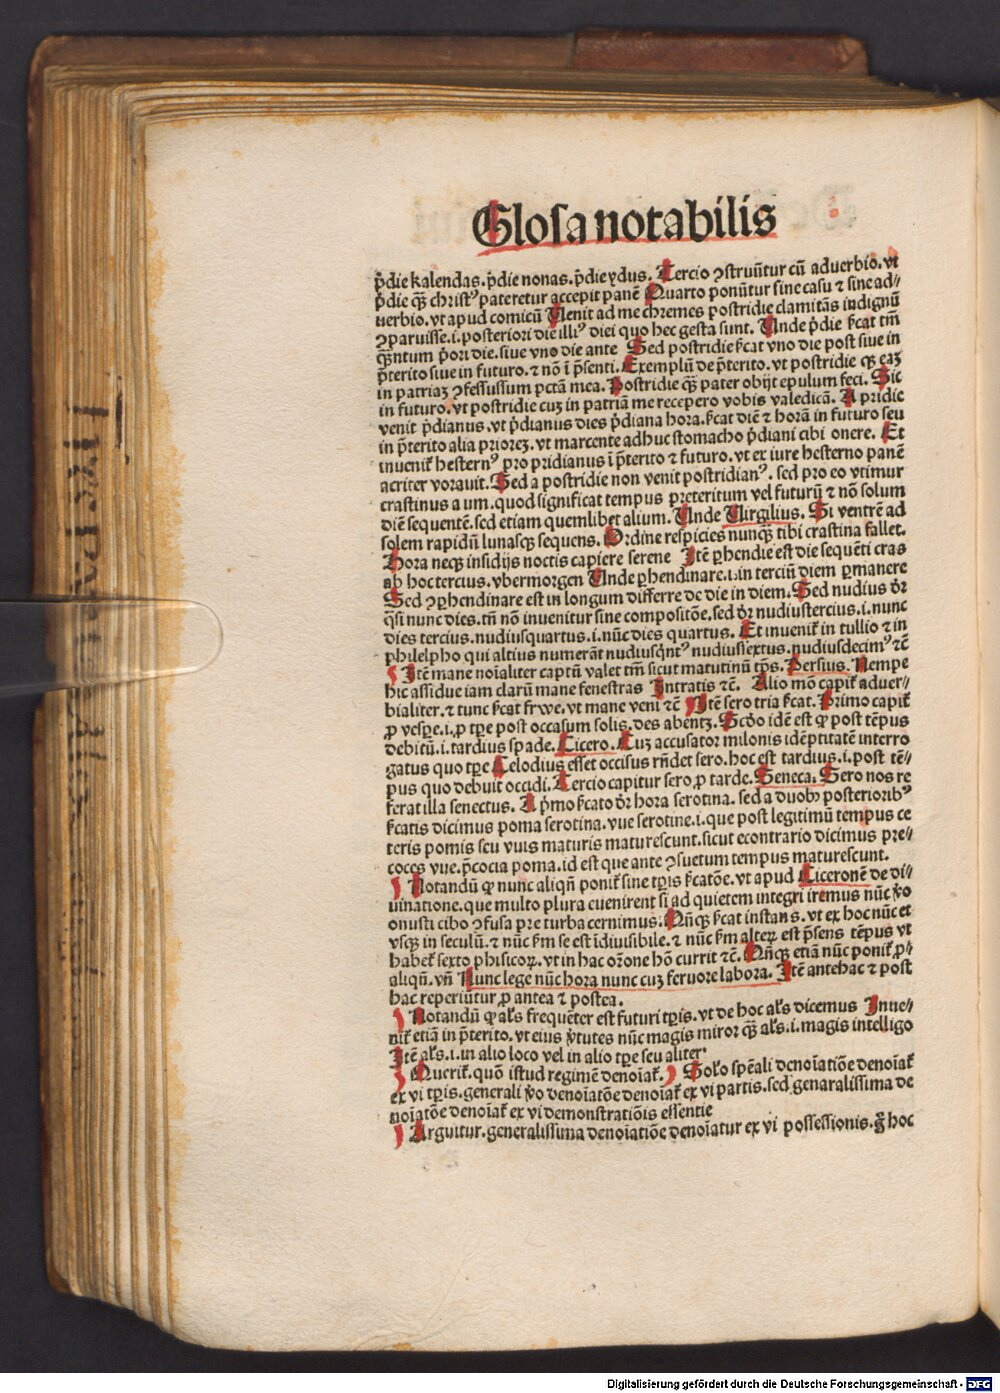 Glosa notabilis
p̄die kalendas. p̄die nonas. p̄die ydus. Tercio ꝯstruūtur cū aduerbio. vt
p̄die qꝫ̄ christꝰ pateretur accepit panē Quarto ponūtur sine casu ⁊ sine ad⸗
uerbio. vt apud comicū Uenit ad me chremes postridie clamitās indignū
ꝯparuisse. i. posteriori die illiꝰ diei quo hec gesta sunt. Unde p̄die ẜcat tm̄
qꝫ̄ntum p̄ori die. siue vno die ante Sed postridie ẜcat vno die post siue in
p̄terito siue in futuro. ⁊ nō ī p̄senti. Exemplū de p̄terito. vt postridie qꝫ eaꝫ
in patriaꝫ ꝯfessussum pctā mea. Postridie qꝫ̄ pater obijt epulum feci. Sic
in futuro. vt postridie cuꝫ in patriā me recepero vobis valedicā. A pridie
venit p̄dianus. vt p̄dianus dies p̄diana hora. ẜcat diē ⁊ horā in futuro seu
in p̄terito alia prioreꝫ. vt marcente adhuc stomacho p̄diani cibi onere. Et
inuenit̄ hesternꝰ pro pridianus ī p̄terito ⁊ futuro. vt ex iure hesterno panē
acriter vorauit. Sed a postridie non venit postridianꝰ. sed pro eo vtimur
crastinus a um. quod significat tempus preteritum vel futurū ⁊ nō solum
diē sequentē. sed etiam quemlibet alium. Unde Uirgilius. Si ventrē ad
solem rapidū lunasqꝫ sequens. Ordine respicies nunqꝫ̄ tibi crastina fallet.
Hora necqꝫ insidijs noctis capiere serene Itē ꝑhendie est die sequēti cras
ab hoc tercius. vbermorgen Unde ꝑhendinare. i. in terciū diem ꝑmanere
Sed ꝯꝑhendinare est in longum differre de die in diem. Sed nudius dr̄
qͣsi nunc dies. tn̄ nō inuenitur sine compositōe. sed dr̄ nudiustercius. i. nunc
dies tercius. nudiusquartus. i. nūc dies quartus. Et inuenit̄ in tullio ⁊ in
philelpho qui altius numerāt nudiusqͥntꝰ nudiussextus. nudiusdecimꝰ ⁊cē
Itē mane noīaliter captū valet tm̄ sicut matutinū tp̄s. Persius. Nempe
hic assidue iam clarū mane fenestras Intratis ⁊cē. Alio mō capit̄ aduer⸗
bialiter. ⁊ tunc ẜcat frwe. vt mane veni ⁊cē Itē sero tria ẜcat. Primo capit̄
ꝓ vesꝑe. i. ꝓ tꝑe post occasum solis. des abentꝫ. Scd̄o idē est qꝙ post tēpus
debitū. i. tardius spade. Cicero. Cuꝫ accusator milonis idēptitatē interro
gatus quo tꝑe Celodius esset occisus rn̄det sero. hoc est tardius. i. post tē⸗
pus quo debuit occidi. Tercio capitur sero ꝓ tarde. Seneca. Sero nos re
ferat illa senectus. A p̄mo ẜcato dr̄ hora serotina. sed a duobꝫ posterioribꝰ
ẜcatis dicimus poma serotina. vue serotine. i. que post legitimū tempus ce
teris pomis seu vuis maturis maturescunt. sicut econtrario dicimus pre⸗
coces vue. p̄cocia poma. id est que ante ꝯsuetum tempus maturescunt.
Notandū ꝙ nunc aliqn̄ ponit̄ sine tꝑis ẜcatōe. vt apud Ciceronē de di⸗
uinatione. que multo plura euenirent si ad quietem integri iremus nūc ꝟo
onusti cibo ꝯfusa pre turba cernimus. Qn̄qꝫ ẜcat instans. vt ex hoc nūc et
vsqꝫ in seculū. ⁊ nūc ẜm se est īdiuisibile. ⁊ nūc ẜm alteꝝ est p̄sens tēpus vt
habet̄ sexto phisicoꝝ. vt in hac or̄one hō currit ⁊cē. Qn̄qꝫ etiā nūc ponit̄ ꝓ⸗
aliqn̄. vn̄ Nunc lege nūc hora nunc cuꝫ feruore labora. Itē antehac ⁊ post
hac reperiūtur ꝓ antea ⁊ postea.
Notandū ꝙ al̄s frequēter est futuri tꝑis. vt de hoc al̄s dicemus Inue⸗
nit̄ etiā in p̄terito. vt eius ꝟtutes nūc magis miror qꝫ̄ al̄s. i. magis intelligo
Itē al̄s. i. in alio loco vel in alio tꝑe seu aliter.
Querit̄. quō istud regimē denoīat̄. Sol̄o spēali denoīatiōe denoīat̄
ex vi tꝑis. generali ꝟo denoīatōe denoīat̄ ex vi partis. sed genaralissima de
noīatōe denoīat̄ ex vi demonstratiōis essentie
Arguitur. generalissima denoīatiōe denoīatur ex vi possessionis. gͦ hoc
Digitalisierung gefördert durch die Deutsche Forschungsgemeinschaft - DFG